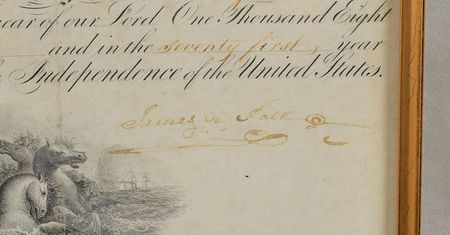 year of our Lord One Thousand Eight
and in the seventy first, year
Independence of the United States.
James K Polk